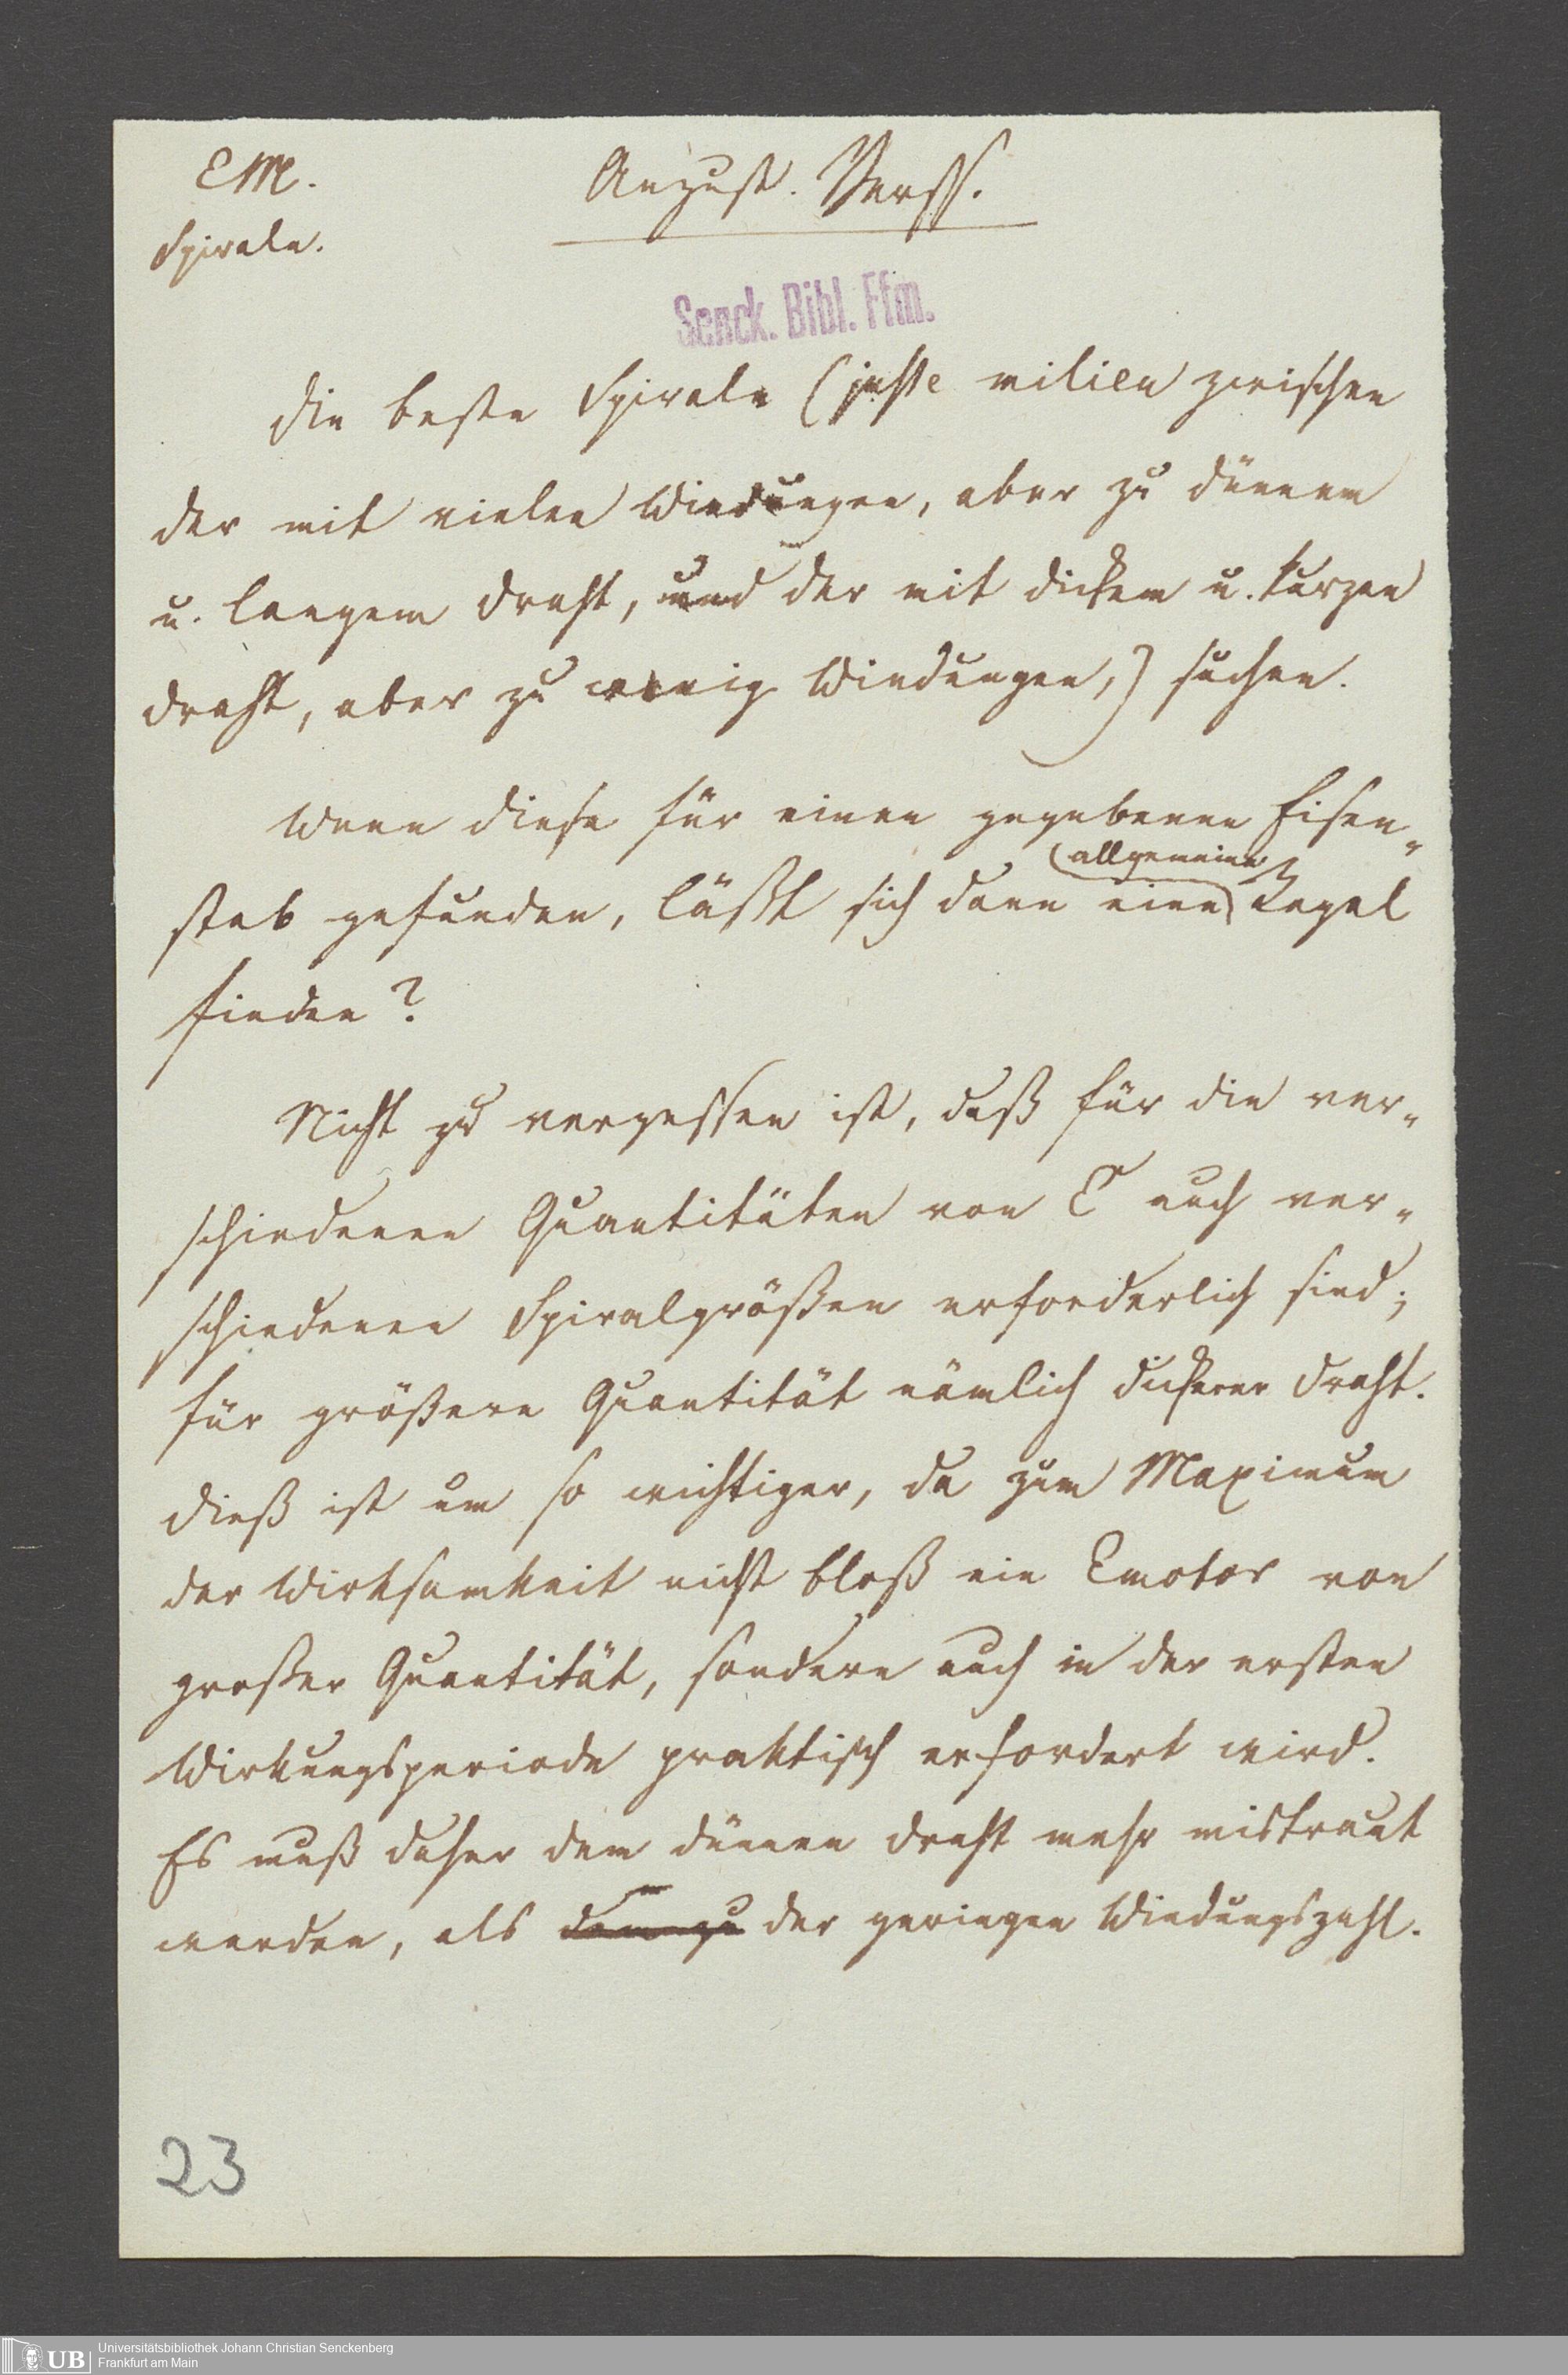 EM.
August. Verss.
Spirale.
Senck. Bibl. Ffm.
Die beste Spirale (juste milieu zwischen
der mit vielen Windungen, aber zu dünnem
u. langem Draht, und der mit dickem u. kurzen
Draht, aber zu wenig Windungen,) suchen.
Wenn diese für einen gegebenen Eisen-
allgemeine
stab gefunden, läßt sich dann eine Regel
finden?
Nicht zu vergessen ist, daß für die ver-
schiedenen Quantitäten von E auch ver-
schiedenen Spiralgrößen erforderlich sind;
für größere Quantität nämlich dickerer Draht.
Dieß ist um so wichtiger, da zum Maximum
der Wirksamkeit nicht bloß ein Emotor von
großer Quantität, sondern auch in der ersten
Wirkungsperiode praktisch erfordert wird.
Es muß daher dem dünnen Draht mehr mistraut
werden, als der geringen Windungszahl.
23
UB Universitätsbibliothek Johann Christian Senckenberg
Frankfurt am Main